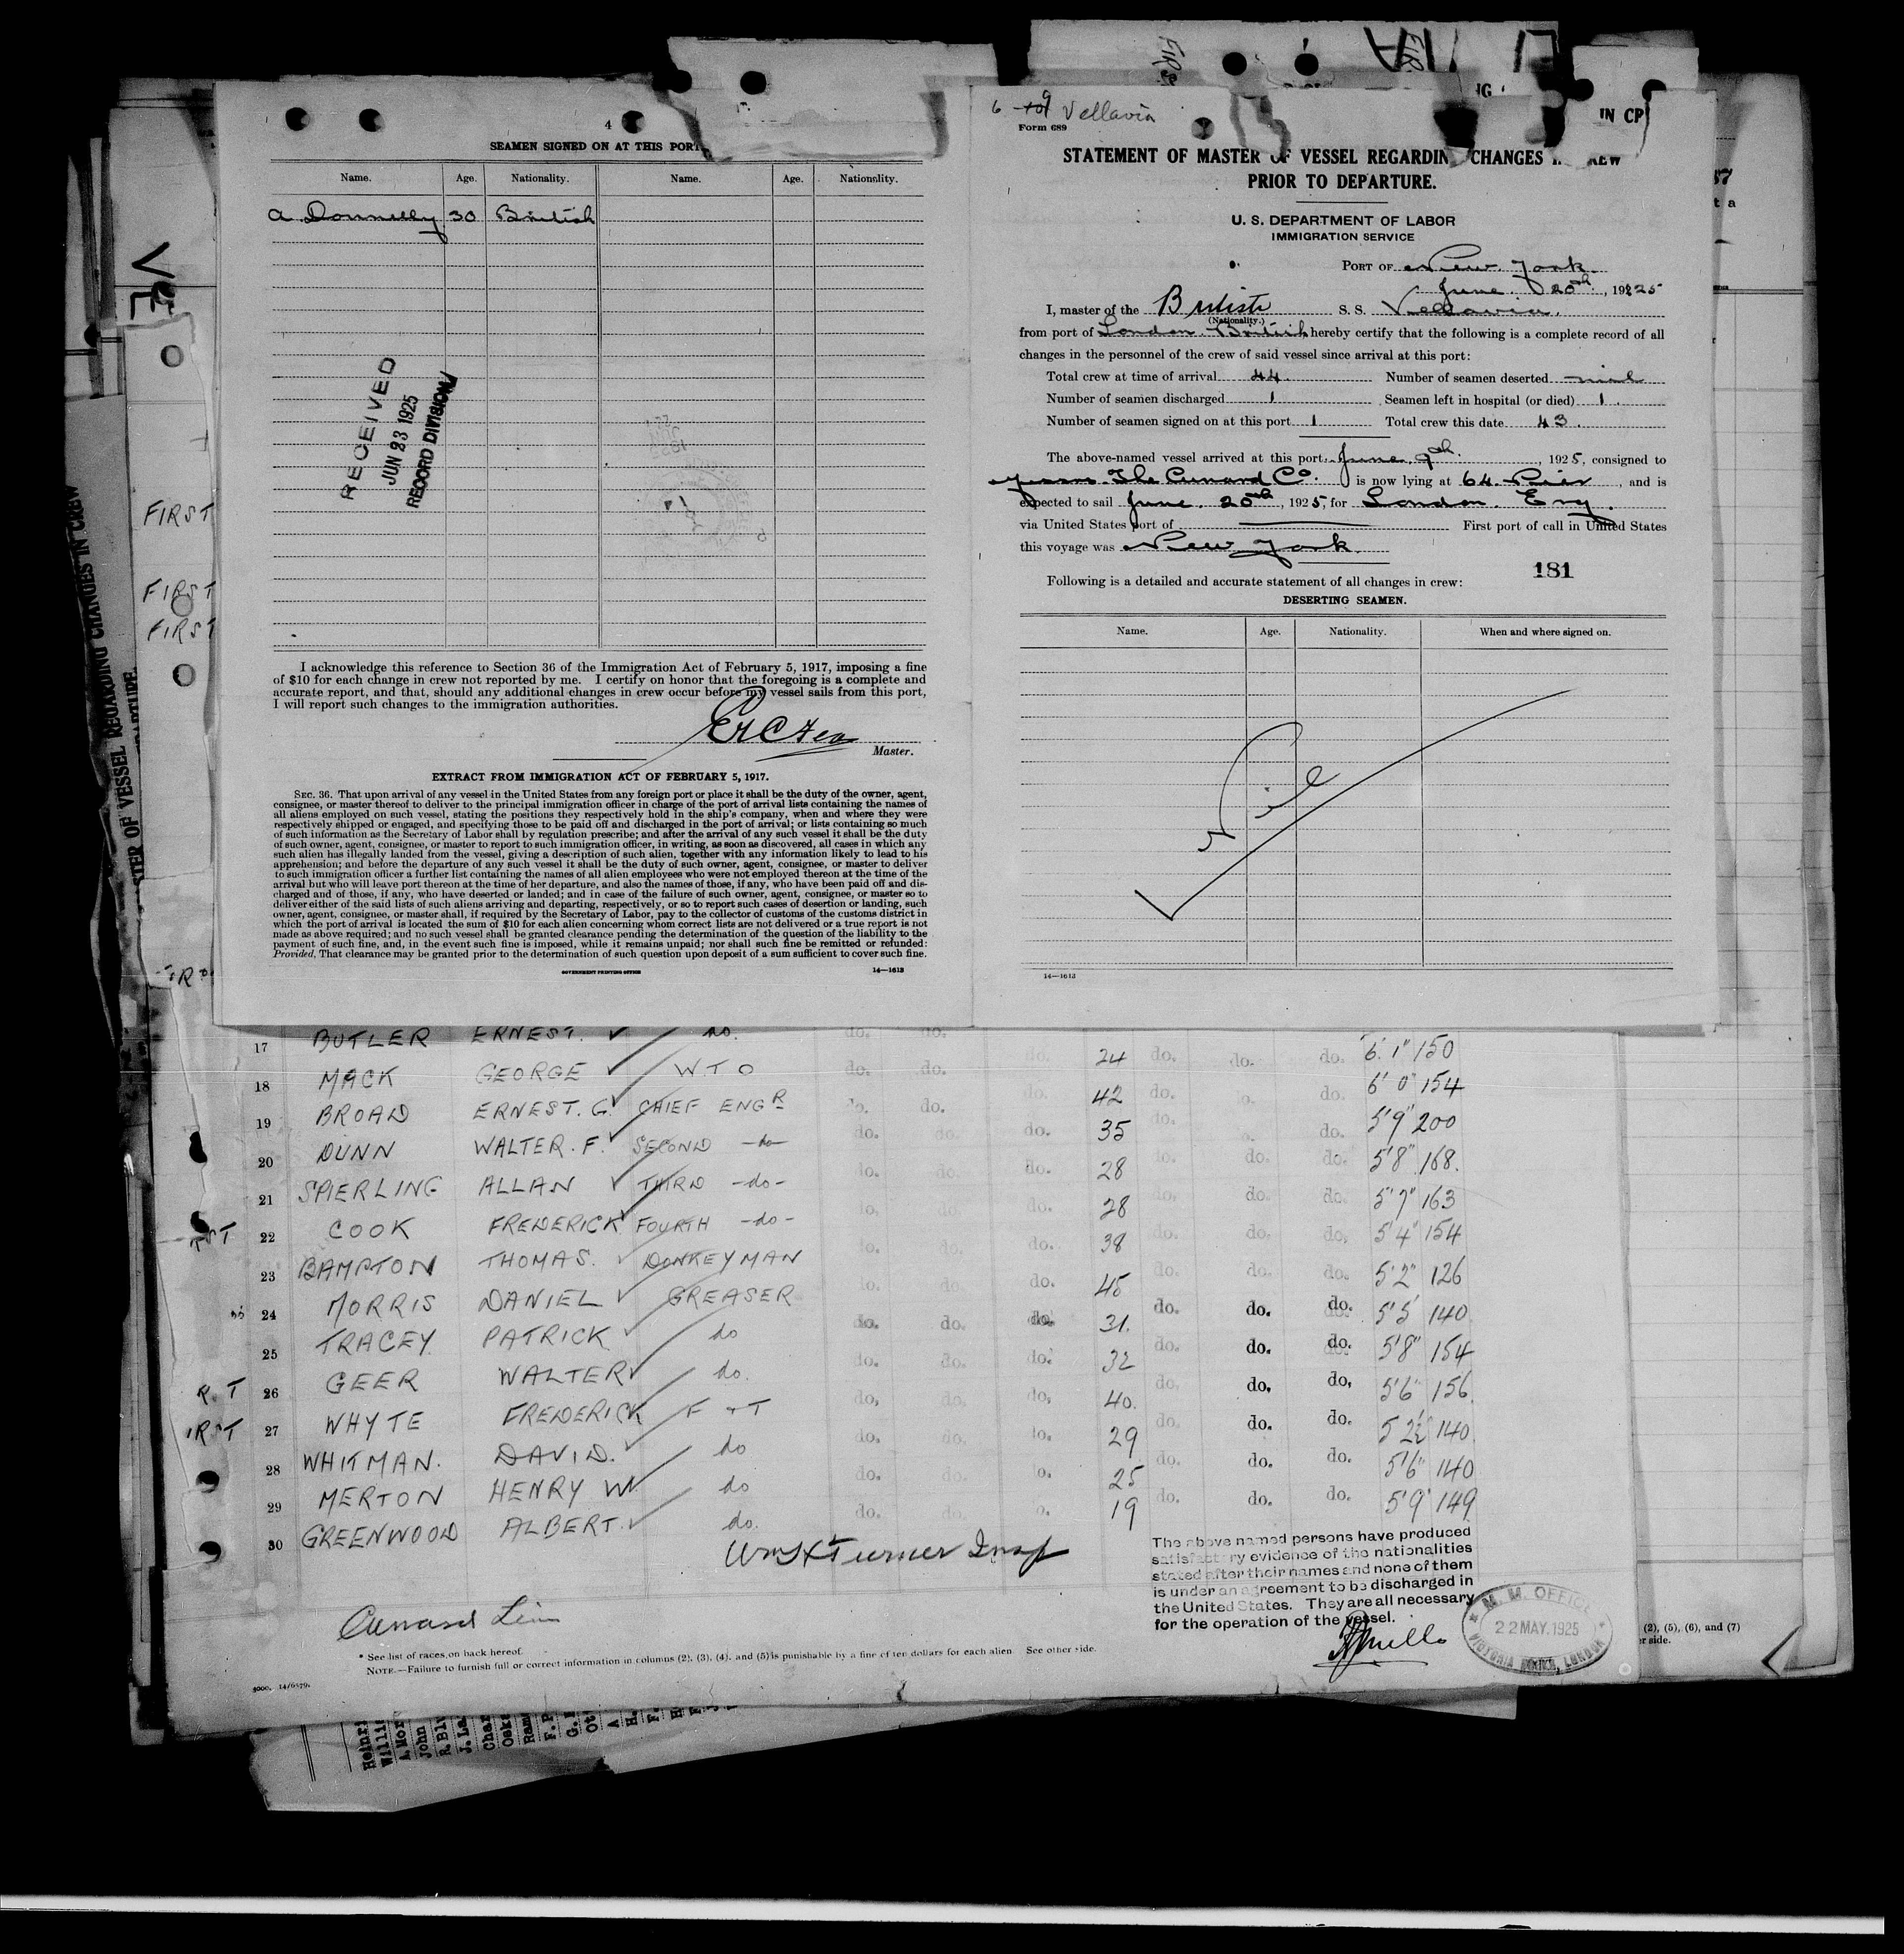 4
SEAMEN SIGNED ON AT THIS PORT
Name. Age. Nationality. Name. Age. Nationality.
A. Donnelly 30 British
RECEIVED
JUN 23 1925
RECORD DIVISION
I acknowledge this reference to Section 36 of the Immigration Act of February 5, 1917, imposing a fine
of $10 for each change in crew not reported by me. I certify on honor that the foregoing is a complete and
accurate report, and that, should any additional changes in crew occur before my vessel sails from this port,
I will report such changes to the immigration authorities.
Master.
EXTRACT FROM IMMIGRATION ACT OF FEBRUARY 5, 1917.
SEC. 36. That upon arrival of any vessel in the United States from any foreign port or place it shall be the duty of the owner, agent,
consignee, or master thereof to deliver to the principal immigration officer in charge of the port of arrival lists containing the names of
all aliens employed on such vessel, stating the positions they respectively hold in the ship's company, when and where they were
respectively shipped or engaged, and specifying those to be paid off and discharged in the port of arrival; or lists containing so much
of such information as the Secretary of Labor shall by regulation prescribe; and after the arrival of any such vessel it shall be the duty
of such owner, agent, consignee, or master to report to such immigration officer, in writing, as soon as discovered, all cases in which any
such alien has illegally landed from the vessel, giving a description of such alien, together with any information likely to lead to his
apprehension; and before the departure of any such vessel it shall be the duty of such owner, agent, consignee, or master to deliver
to such immigration officer a further list containing the names of all alien employees who were not employed thereon at the time of the
arrival but who will leave port thereon at the time of her departure, and also the names of those, if any, who have been paid off and dis-
charged and of those, if any, who have deserted or landed; and in case of the failure of such owner, agent, consignee, or master so to
deliver either of the said lists of such aliens arriving and departing, respectively, or so to report such cases of desertion or landing, such
owner, agent, consignee, or master shall, if required by the Secretary of Labor, pay to the collector of customs of the customs district in
which the port of arrival is located the sum of $10 for each alien concerning whom correct lists are not delivered or a true report is not
made as above required; and no such vessel shall be granted clearance pending the determination of the question of the liability to the
payment of such fine, and, in the event such fine is imposed, while it remains unpaid; nor shall such fine be remitted or refunded:
Provided, That clearance may be granted prior to the determination of such question upon deposit of a sum sufficient to cover such fine.
GOVERNMENT PRINTING OFFICE 14—1613
Vellavia
Form 689
STATEMENT OF MASTER OF VESSEL REGARDIN CHANGES I REW
PRIOR TO DEPARTURE.
U. S. DEPARTMENT OF LABOR
IMMIGRATION SERVICE
PORT OF New York
June 20th, 1925
I, master of the British S. S. Vellavia.
(Nationality.)
from port of London British hereby certify that the following is a complete record of all
changes in the personnel of the crew of said vessel since arrival at this port:
Total crew at time of arrival 44. Number of seamen deserted nil
Number of seamen discharged 1 Seamen left in hospital (or died) 1.
Number of seamen signed on at this port 1 Total crew this date 43.
The above-named vessel arrived at this port June 9th, 1925, consigned to
The Cunard Co. is now lying at 64 Pier, and is
expected to sail June 20th, 1925, for London. Eng.
via United States port of First port of call in United States
this voyage was New York
181
Following is a detailed and accurate statement of all changes in crew:
DESERTING SEAMEN.
Name. Age. Nationality. When and where signed on.
Nil
14—1613
FIRST
FIRST
FIRST
17 BUTLER ERNEST. do. do. do. do. 24 do. do. do. 6' 1" 150
18 MACK GEORGE W T O do. do. do. 42 do. do. do. 6' 0" 154
19 BROAD ERNEST. G. CHIEF ENGR do. do. do. 35 do. do. do. 5'9" 200
20 DUNN WALTER. F. SECOND -do- do. do. do. 28 do. do. do. 5'8" 168.
21 SPIERLING ALLAN THIRD -do- do. do. do. 28 do. do. do. 5'7" 163
22 COOK FREDERICK FOURTH -do- do. do. do. 38 do. do. do. 5'4" 154
23 BAMPTON THOMAS. DONKEYMAN do. do. do. 45 do. do. do. 5'2" 126
24 MORRIS DANIEL GREASER do. do. do. 31. do. do. do. 5'5' 140
25 TRACEY PATRICK do do. do. do. 32 do. do. do. 5'8" 154
26 GEER WALTER do. do. do. do. 40. do. do. do. 5'6" 156
27 WHYTE FREDERICK F & T do. do. do. 29 do. do. do. 5 2½ 140
28 WHITMAN. DAVID. do do. do. do. 25 do. do. do. 5'6" 140
29 MERTON HENRY W do do. do. do. 19 do. do. do. 5'9' 149
30 GREENWOOD ALBERT. do.
Wm H Turner Insp
The above named persons have produced
satisfactory evidence of the nationalities
stated after their names and none of them
is under an agreement to be discharged in
the United States. They are all necessary
for the operation of the vessel.
M. M. OFFICE
22 MAY. 1925
VICTORIA DOCK, LONDON
Cunard Line
* See list of races on back hereof.
NOTE.—Failure to furnish full or correct information in columns (2), (3), (4), and (5) is punishable by a fine of ten dollars for each alien See other side.
(2), (5), (6), and (7)
er side.
STER OF VESSEL REGARDING CHANGES IN CREW